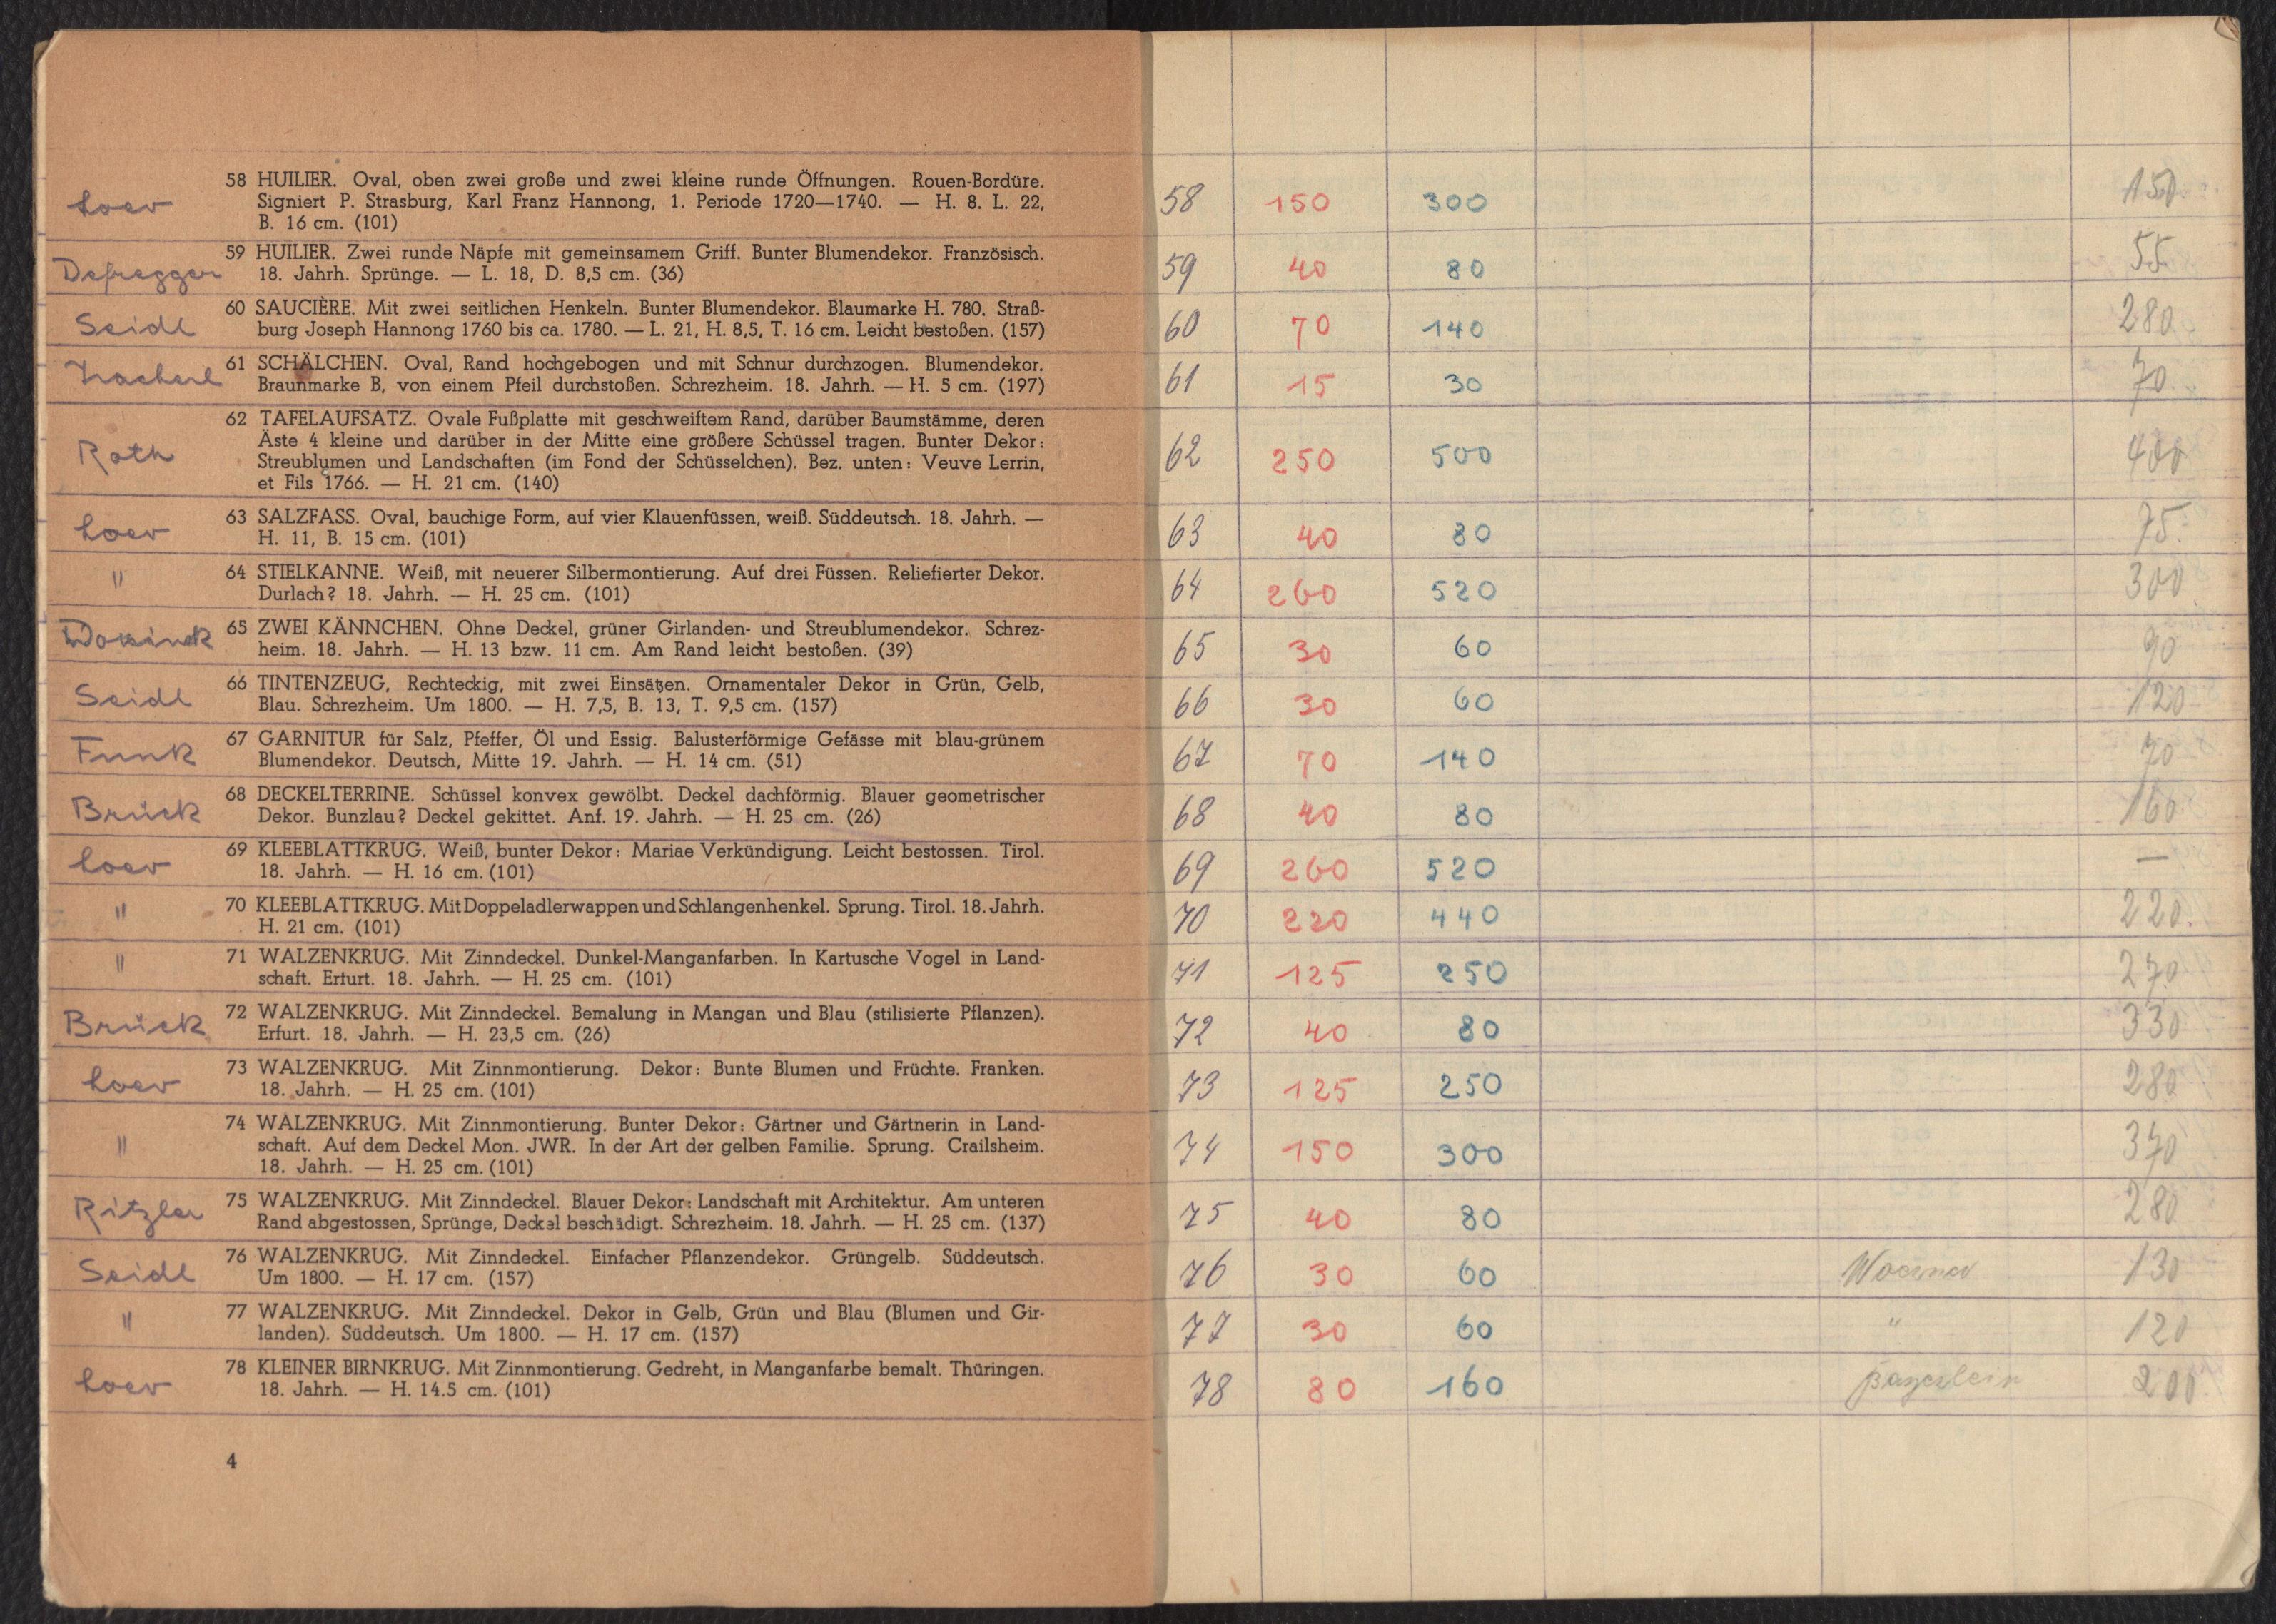 Loev
58 HUILIER. Oval, oben zwei große und zwei kleine runde Öffnungen. Rouen-Bordüre.
Signiert P. Strasburg, Karl Franz Hannong, 1. Periode 1720—1740. — H. 8. L. 22,
B. 16 cm. (101)
58 150 300 150.
Defregger
59 HUILIER. Zwei runde Näpfe mit gemeinsamem Griff. Bunter Blumendekor. Französisch.
18. Jahrh. Sprünge. — L. 18, D. 8,5 cm. (36)
59 40 80 55.
Seidl
60 SAUCIÈRE. Mit zwei seitlichen Henkeln. Bunter Blumendekor. Blaumarke H. 780. Straß-
burg Joseph Hannong 1760 bis ca. 1780. — L. 21, H. 8,5, T. 16 cm. Leicht bestoßen. (157)
60 70 140 280.
61 SCHÄLCHEN. Oval, Rand hochgebogen und mit Schnur durchzogen. Blumendekor.
Braunmarke B, von einem Pfeil durchstoßen. Schrezheim. 18. Jahrh. — H. 5 cm. (197)
61 15 30 70.
Roth
62 TAFELAUFSATZ. Ovale Fußplatte mit geschweiftem Rand, darüber Baumstämme, deren
Äste 4 kleine und darüber in der Mitte eine größere Schüssel tragen. Bunter Dekor:
Streublumen und Landschaften (im Fond der Schüsselchen). Bez. unten: Veuve Lerrin,
et Fils 1766. — H. 21 cm. (140)
62 250 500 400
Loev
63 SALZFASS. Oval, bauchige Form, auf vier Klauenfüssen, weiß. Süddeutsch. 18. Jahrh. —
H. 11, B. 15 cm. (101)
63 40 80 75.
"
64 STIELKANNE. Weiß, mit neuerer Silbermontierung. Auf drei Füssen. Reliefierter Dekor.
Durlach? 18. Jahrh. — H. 25 cm. (101)
64 260 520 300
65 ZWEI KÄNNCHEN. Ohne Deckel, grüner Girlanden- und Streublumendekor. Schrez-
heim. 18. Jahrh. — H. 13 bzw. 11 cm. Am Rand leicht bestoßen. (39)
65 30 60 90
Seidl
66 TINTENZEUG, Rechteckig, mit zwei Einsätzen. Ornamentaler Dekor in Grün, Gelb,
Blau. Schrezheim. Um 1800. — H. 7,5, B. 13, T. 9,5 cm. (157)
66 30 60 120
Funk
67 GARNITUR für Salz, Pfeffer, Öl und Essig. Balusterförmige Gefässe mit blau-grünem
Blumendekor. Deutsch, Mitte 19. Jahrh. — H. 14 cm. (51)
67 70 140 70
Brück
68 DECKELTERRINE. Schüssel konvex gewölbt. Deckel dachförmig. Blauer geometrischer
Dekor. Bunzlau? Deckel gekittet. Anf. 19. Jahrh. — H. 25 cm. (26)
68 40 80 160
Loev
69 KLEEBLATTKRUG. Weiß, bunter Dekor: Mariae Verkündigung. Leicht bestossen. Tirol.
18. Jahrh. — H. 16 cm. (101)
69 260 520 —
"
70 KLEEBLATTKRUG. Mit Doppeladlerwappen und Schlangenhenkel. Sprung. Tirol. 18. Jahrh.
H. 21 cm. (101)
70 220 440 220.
"
71 WALZENKRUG. Mit Zinndeckel. Dunkel-Manganfarben. In Kartusche Vogel in Land-
schaft. Erfurt. 18. Jahrh. — H. 25 cm. (101)
71 125 250 270
Brück
72 WALZENKRUG. Mit Zinndeckel. Bemalung in Mangan und Blau (stilisierte Pflanzen).
Erfurt. 18. Jahrh. — H. 23,5 cm. (26)
72 40 80 330
Loev
73 WALZENKRUG. Mit Zinnmontierung. Dekor: Bunte Blumen und Früchte. Franken.
18. Jahrh. — H. 25 cm. (101)
73 125 250 280
"
74 WALZENKRUG. Mit Zinnmontierung. Bunter Dekor: Gärtner und Gärtnerin in Land-
schaft. Auf dem Deckel Mon. JWR. In der Art der gelben Familie. Sprung. Crailsheim.
18. Jahrh. — H. 25 cm. (101)
74 150 300 370
Ritzler
75 WALZENKRUG. Mit Zinndeckel. Blauer Dekor: Landschaft mit Architektur. Am unteren
Rand abgestossen, Sprünge, Deckel beschädigt. Schrezheim. 18. Jahrh. — H. 25 cm. (137)
75 40 80 280
Seidl
76 WALZENKRUG. Mit Zinndeckel. Einfacher Pflanzendekor. Grüngelb. Süddeutsch.
Um 1800. — H. 17 cm. (157)
76 30 60 130
"
77 WALZENKRUG. Mit Zinndeckel. Dekor in Gelb, Grün und Blau (Blumen und Gir-
landen). Süddeutsch. Um 1800. — H. 17 cm. (157)
77 30 60 " 120
Loev
78 KLEINER BIRNKRUG. Mit Zinnmontierung. Gedreht, in Manganfarbe bemalt. Thüringen.
18. Jahrh. — H. 14.5 cm. (101)
78 80 160 200
4